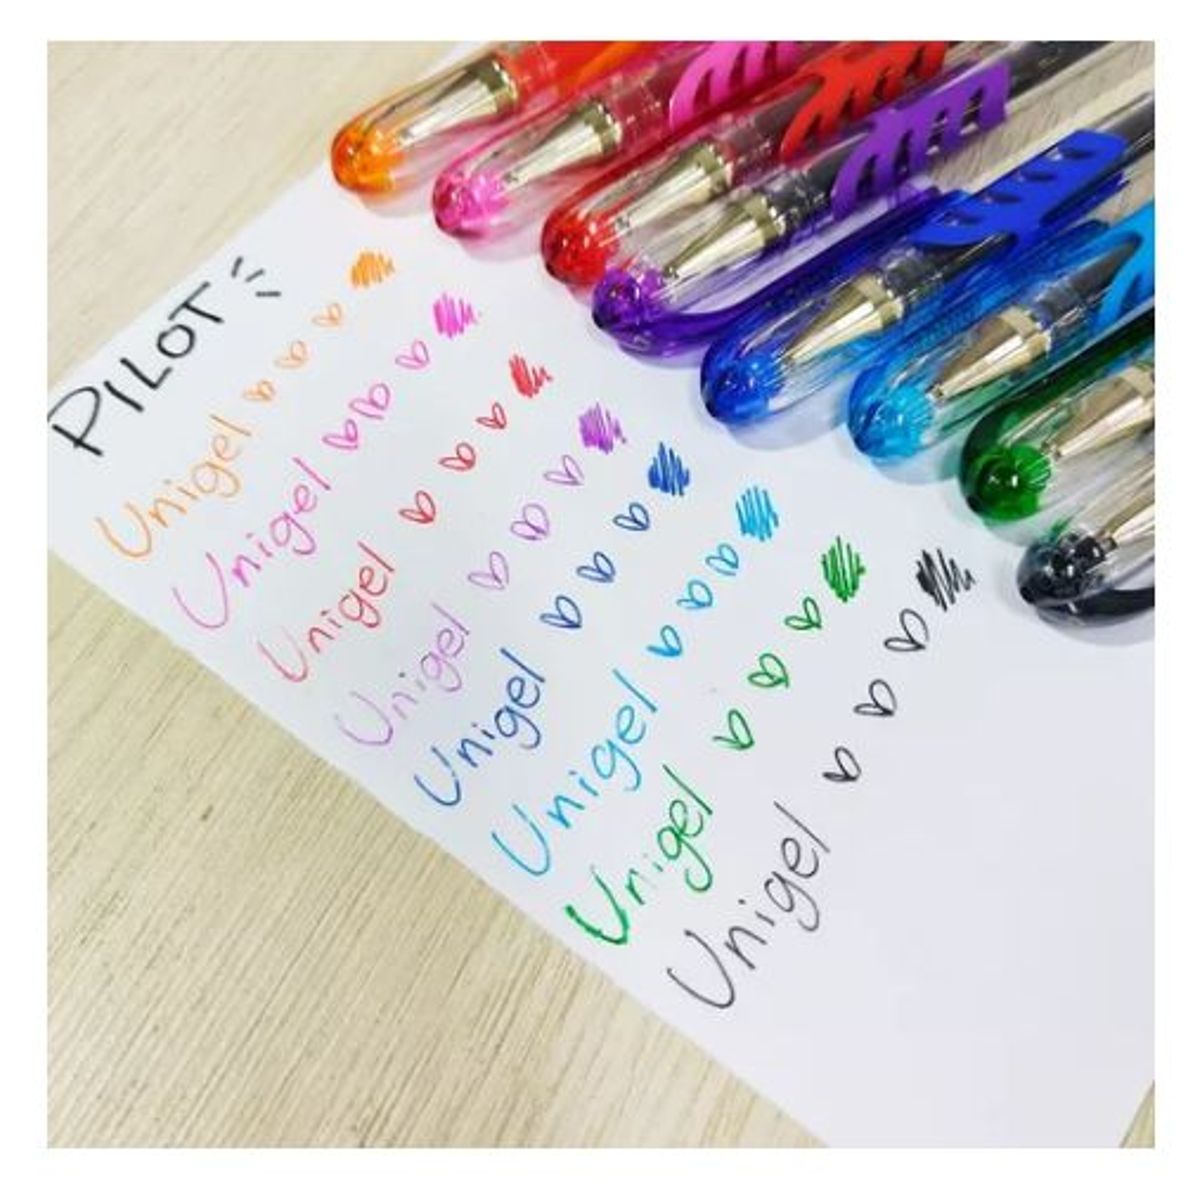 PILOT
Unigel
Unigel
Unigel
Unigel
Unigel
Unigel
Unigel
Unigel